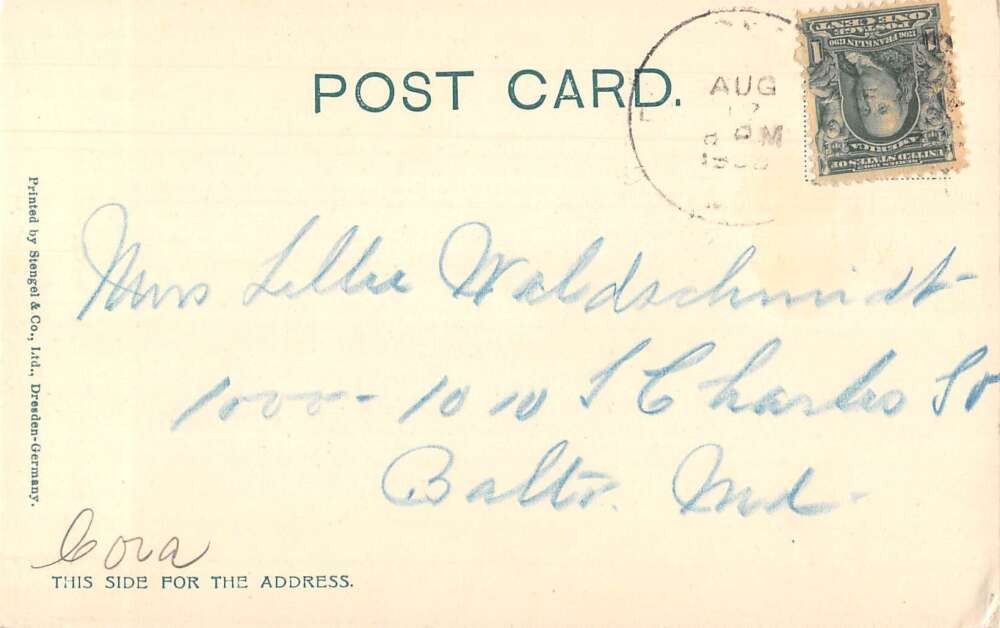 POST CARD.
AUG
PM
POSTAGE
ONE CENT
1706 FRANKLIN 1790
1
UNITED STATES OF
AMERICA
Printed by Stengel & Co., Ltd., Dresden-Germany.
Miss Lillie Waldschmidt
1000 - 10 10 S Charles St
Balto. Md
Cora
THIS SIDE FOR THE ADDRESS.